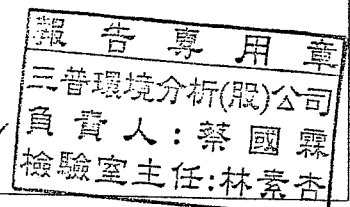 報告專用章
三普環境分析(股)公司
負責人:蔡國霖
檢驗室主任:林素杏